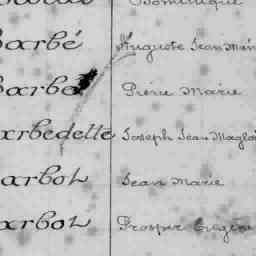 Dominique
Barbé Auguste Jean Marie
Barbe Pierre Marie
Barbedette Joseph Jean Magloire
Barbot Jean Marie
Barbot Prosper Eugène